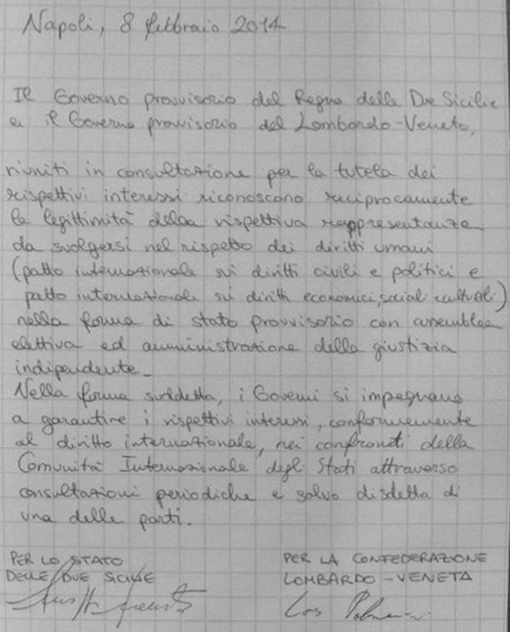 Napoli, 8 febbraio 2014
Il Governo provvisorio del Regno delle Due Sicilie
e il Governo provvisorio del Lombardo-Veneto,
riuniti in consultazione per la tutela dei
rispettivi interessi riconoscono reciprocamente
la legittimità della rispettiva rappresentanza
da svolgersi nel rispetto dei diritti umani
(patto internazionale sui diritti civili e politici e
patto internazionale sui diritti economici, sociali e culturali)
nella forma di stato provvisorio con assemblea
elettiva ed amministrazione della giustizia
indipendente_
Nella forma suddetta, i Governi si impegnano
a garantire i rispettivi interessi, conformemente
al diritto internazionale, nei confronti della
Comunità Internazionale degli Stati attraverso
consultazioni periodiche e salvo disdetta di
una delle parti.
PER LO STATO
DELLE DUE SICILIE
PER LA CONFEDERAZIONE
LOMBARDO-VENETA